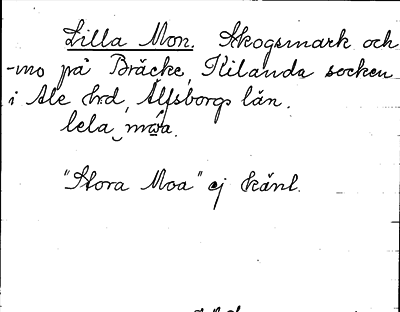 Lilla Mon. Skogsmark och
-mo på Bräcke, Kilanda socken
i Ale hrd, Älfsborgs län.
lela måa.
"Stora Moa" ej känt.